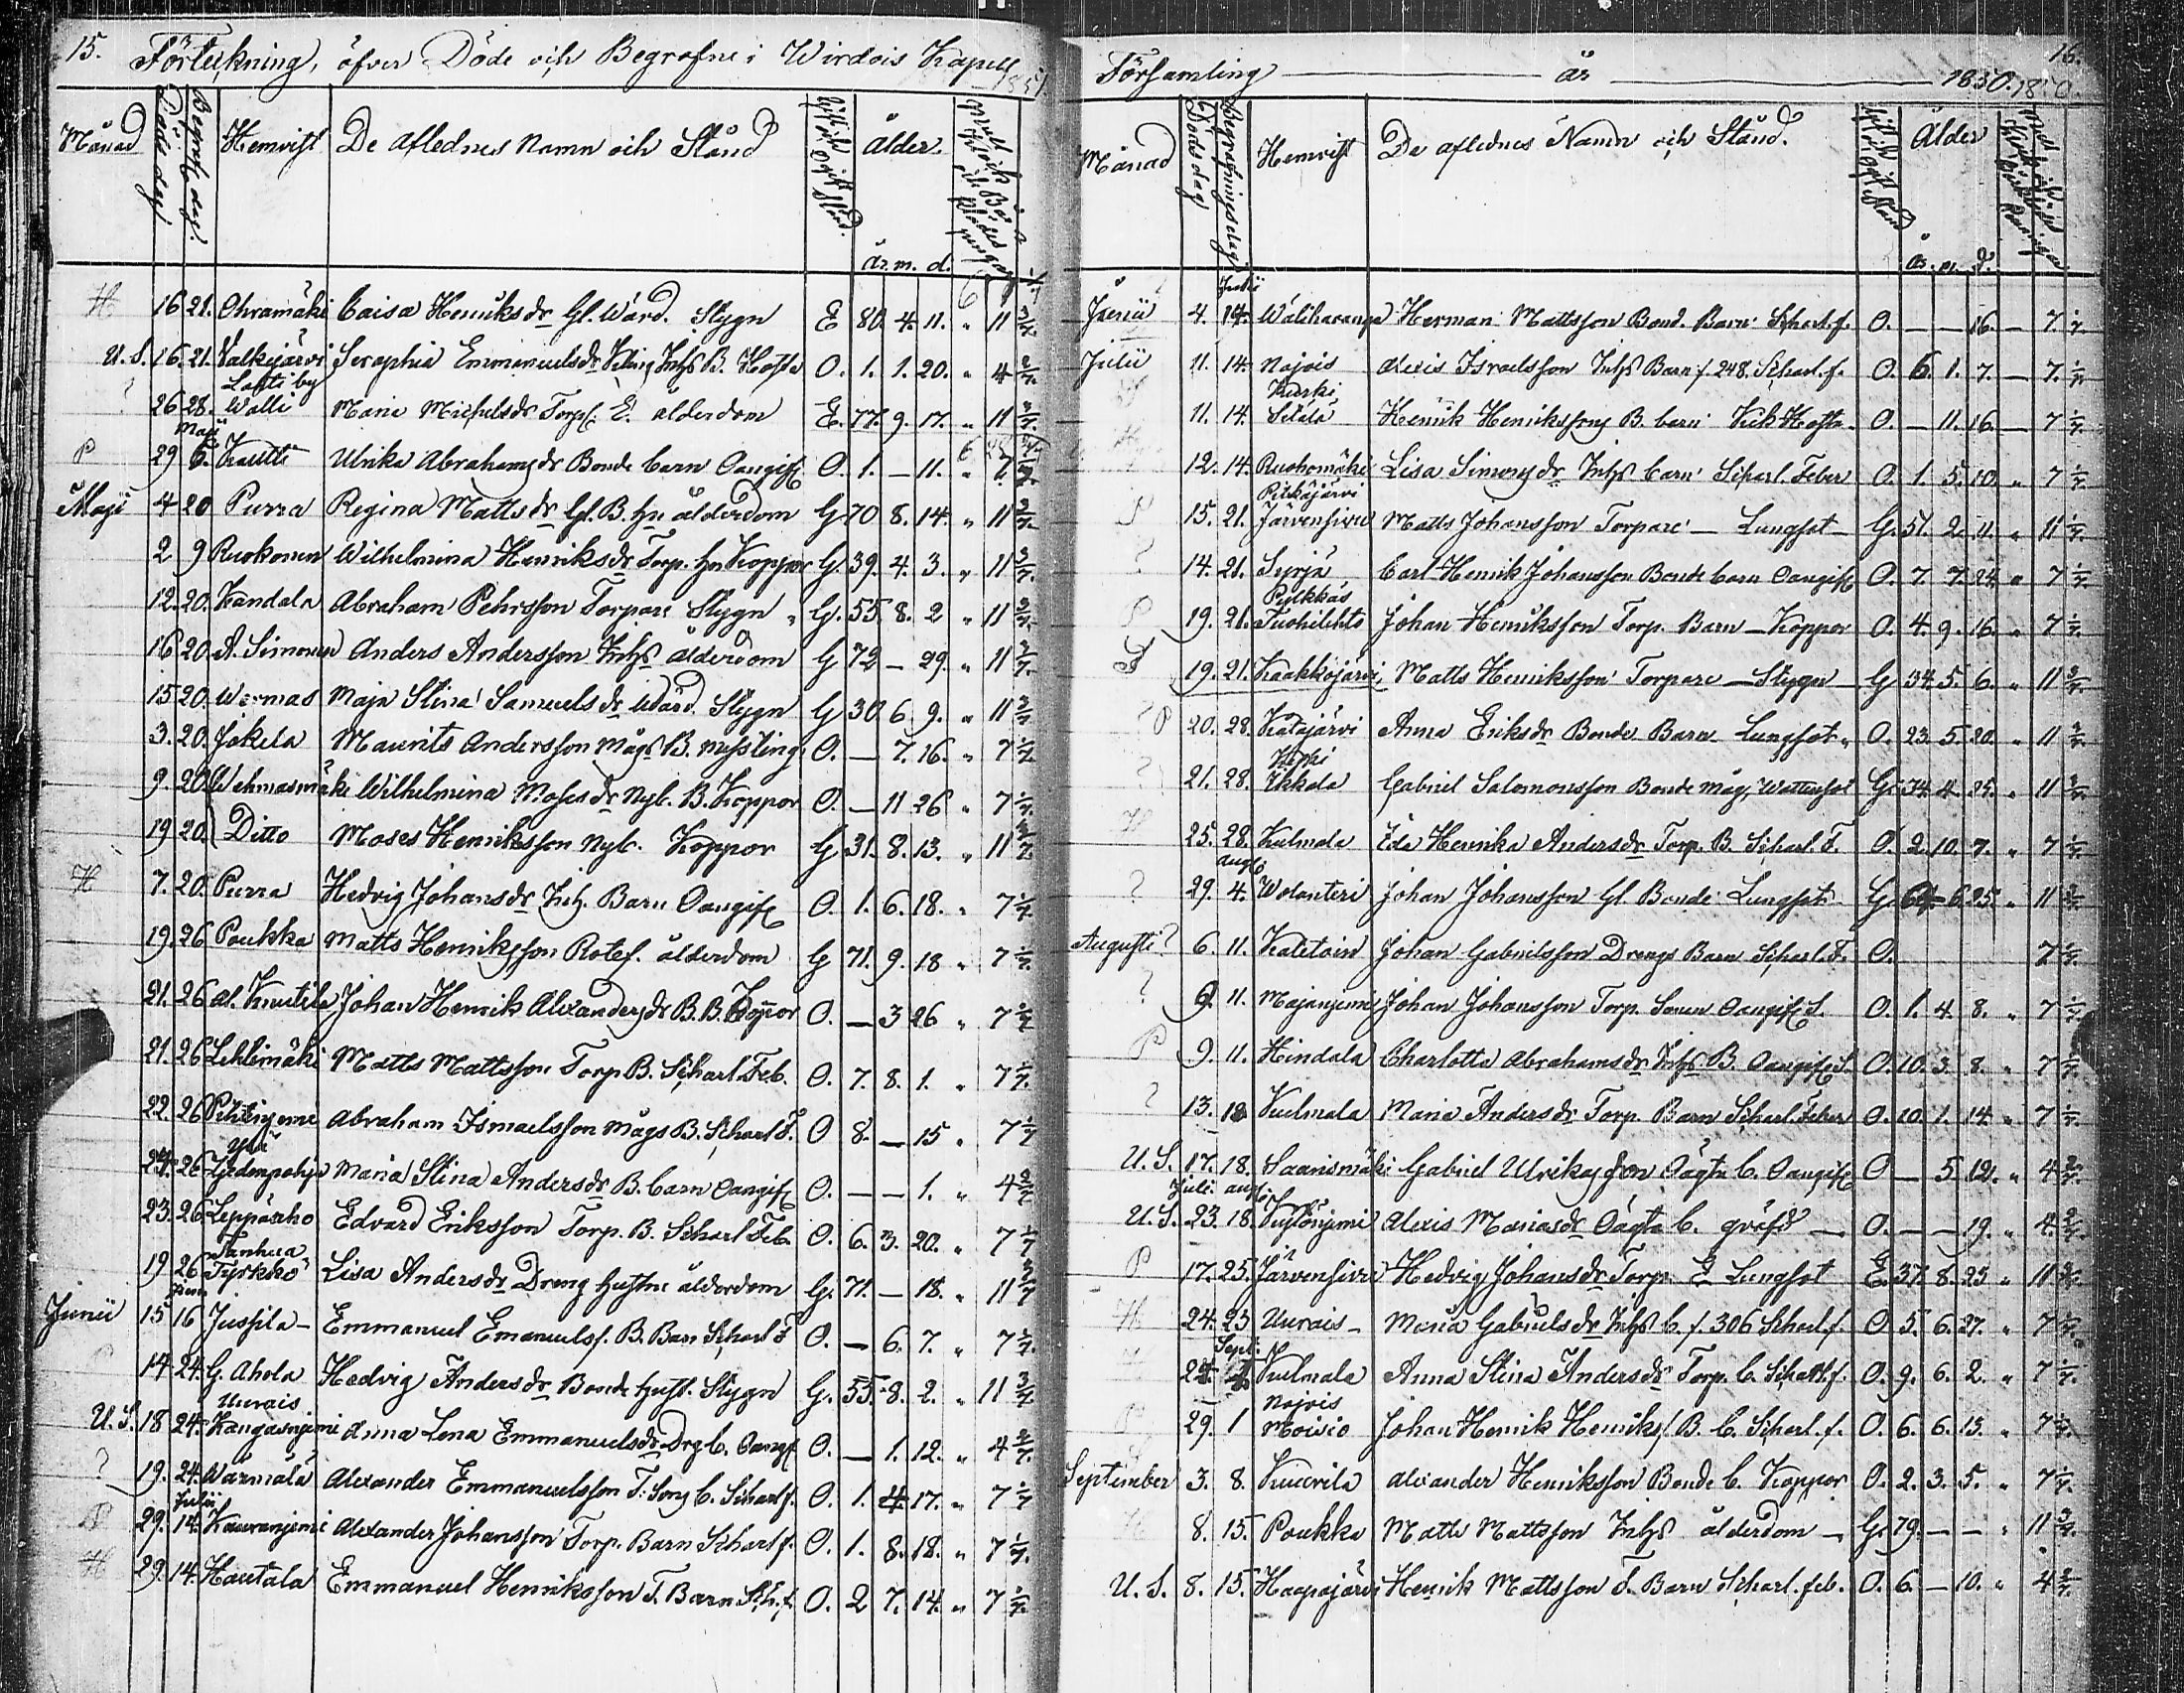 15. Förteckning, öfver Döde och Begrafne i Wirdois Kapell
Månad Döds dag Begrafn. dag. Hemvist De Aflednes Namn och Stånd Gift och Ogift Stånd. ålder.
år. m. d.
H 16 21. Ohramäki Caisa Henriksdr Gl. Wärd. Stygn E 80. 4. 11. " 11 3/7.
U. S. 16. 21. Valkejärvi Seraphia Emmanuelsdr Inhs B. Hosta O. 1. 1. 20. " 4 2/7.
Lahti by
? 26 28. Walli Maria Michelsdr Torp. E. ålderdom E. 77. 9. 17. " 11 3/7.
Maji
P 29 5. Kautto Ulrika Abrahamsdr Bonde barn Oangif O. 1. — 11. " 7
Maji 4 20 Purra Regina Mattsdr Gl. B. hu ålderdom G 70 8. 14. " 11 3/7.
2 9 Ruokonen Wilhelmina Henriksdr Torp. hu Koppor G. 39. 4. 3. " 11 3/7.
12. 20. Kandala Abraham Pehrsson Torpare Stygn " G. 55. 8. 2 " 11 3/7.
16 20. A. Simonen Anders Andersson Inhs ålderdom G 72 — 29. " 11 3/7.
15 20. Wermas Maja Stina Samuelsdr Wärd. Stygn G 30 6. 9. " 11 3/7
3. 20. Jokela Maurits Andersson Mågs B. Messling O. — 7. 16. " 7 1/7.
9. 20. Wehmasmäki Wilhelmina Mosesdr Nyb. B. Koppor O. — 11 26 " 7 1/7.
19 20. Ditto Moses Henriksson Nyb. Koppor G 31. 8. 13. " 11 3/7.
H 7. 20. Purra Hedvig Johansdr Inh. Barn Oangif O. 1. 6. 18. " 7 1/7
19. 26 Poukka Matts Henriksson Rotef. ålderdom G 71. 9. 18 " 7 1/7.
21. 26 Al. Knutila Johan Henrik Alexandersdr B. B. Koppor O. — 3 26 " 7 1/7
21. 26 Lehtimäki Matts Mattsson Torp B. Scharl. Feb. O. 7. 8. 1. " 7 1/7.
22. 26 Abraham Ismaelsson Mågs B. Scharl F. O 8. — 15 " 7 1/7
Ylä
24. 26 Hedenpohja Maria Stina Andersdr B. barn Oangif O. — — 1. " 4 2/7
23. 26 Leppäaho Edvard Eriksson Torp. B. Scharl Feb. O. 6. 3. 20. " 7 1/7
Tanhua
19 26 Tyrkkö Lisa Andersdr Dreng hustru ålderdom G. 71. — 18. " 11 3/7
Junii
Junii 15 16 Jussila - Emmanuel Emanuelss. B. Barn Scharl F O. — 6. 7. " 7 1/7.
14. 24. G. Ahola Hedvig Andersdr Bonde hust. Stygn G. 55. 8. 2. " 11 3/7
Uurais
U. S. 18 24. Kangasnjemi Anna Lena Emmanuelsdr Drg b. Oangf O. — 1. 12. " 4 2/7.
? 19. 24. Wärmälä Alexander Emmanuelsson T. Sons b. Scharl f. O. 1. 4. 17. " 7 1/7
Julii
P 29. 14. Kauranjemi Alexander Johansson Torp. Barn Scharl f. O. 1. 8. 18. " 7 1/7.
H 29. 14. Hautala Emmanuel Henriksson T. Barn Sch. f. O. 2 7. 14. " 7 1/7.
16.
Församling ——— år ——— 1850. 1850.
Månad Döds dag Begrafnings dag Hemvist De aflednes Namn och Stånd. Gift och Ogift Stånd Ålder
år. m. d.
Julii
Junii 4. 14. Wäliharanga Herman Mattsson Bond. Barn Scharl. f. O. — — 16. — 7 1/7.
Julii 11. 14. Najois Alexis Israelsson Inhs Barn f. 248. Scharl. f. O. 6. 1. 7. — 7. 1/7
Kurki
11. 14. Setälä Henrik Henrikssons B. barn Kik Hosta O. — 11. 16. — 7 1/7.
12. 14. Ruohomäki Lisa Simonsdr Inhs barn Scharl. Feber O. 1. 5. 10. " 7 1/7.
Pitkäjärvi
P 15. 21. Järvensivu Matts Johansson Torpare — Lungsot — G. 51. 2. 11. " 11 1/7.
? 14. 21. Syrjä Carl Henrik Johansson Bonde barn Oangif O. 7. 7. 24. " 7 1/7.
Pulkkas
P 19. 21. Tuohilehto Johan Henriksson Torp. Barn — Koppor O. 4. 9. 16. " 7 1/7.
19. 21. Kaakkojärvi Matts Henriksson Torpare — Stygn — G 34. 5. 6. " 11 3/7.
? P 20. 28. Katajärvi Anna Eriksdr Bonde Barn Lungsot " O. 23. 5. 20. " 11 3/7.
21. 28. Ikkala Gabriel Salomonsson Bonde måg, Wattusot G. 34. 4 25. " 11 3/7.
H 25. 28. Kulmala Eda Henrika Andersdr Torp. B. Scharl. F. O. 2. 10. 7. " 7 1/7.
Aug.
? 29. 4. Wolanteri Johan Johansson Gl. Bonde Lungsot G. 64 6. 25. " 11 3/7.
Augusti ? 6. 11. Katetoin Johan Gabrielsson Drengs Barn Scharl. F. O. 7 1/7.
? 9. 11. Majanjemi Johan Johansson Torp. Sonen Oangif S. O. 1. 4. 8. " 7 1/7.
P 9. 11. Hindala Charlotta Abrahamsdr Inhs B. Oangif S. O. 10. 3. 8. " 7 1/7.
? 13. 18 Kulmala Maria Andersdr Torp. Barn Scharl. Feber O. 10. 1. 14. " 7 1/7.
U. S. 17. 18. Saarismäki Gabriel Ulrikasson Oägta b. Oangif O — 5 12. " 4 2/7.
Juli. aug.
U. S. 23. 18. Alexis Mariasdr Oägta b. qväfd — O. — — 19. " 4 2/7.
P 17. 25. Järvensivu Hedvig Johansdr Torp. E Lungsot E. 37. 8. 23 " 11 3/7.
H. 24. 25 Uurais - Maria Gabrielsdr Inhs b. f. 306 Scharl. f. O 5. 6. 27. " 7 1/7.
Sept.
24. 1 Kulmala Anna Stina Andersdr Torp. b. Scharl. f. O. 9. 6. 2. " 7 1/7.
Nojois
P 29. 1 Moisio Johan Henrik Henrikss. B. b. Scharl. f. O. 6. 6. 13. " 7 1/7.
September 3. 8. Kuurila Alexander Henriksson Bonde b. Koppor O. 2. 3. 5. " 7 1/7.
8. 15. Poukka Matts Mattsson Inhs ålderdom — G. 79. — — " 11 3/7.
U. S. 8. 15. Haapajärvi Henrik Mattsson T. Barn Scharl. feb. O. 6. — 10. " 4 2/7.